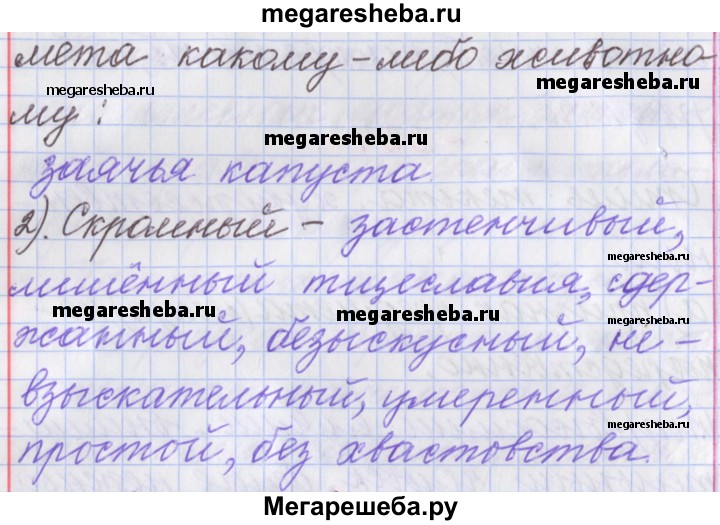 megaresheba.ru
мета какому-либо животно-
megaresheba.ru
megaresheba.ru
му:
megaresheba.ru
заячья капуста
2). Скромный - застенчивый,
megaresheba.ru
лишённый тщеславия, сдер-
megaresheba.ru
megaresheba.ru
жанный, безыскусный, не-
взыскательный, умеренный,
megaresheba.ru
простой, без хвастовства.
Мегарешеба.ру